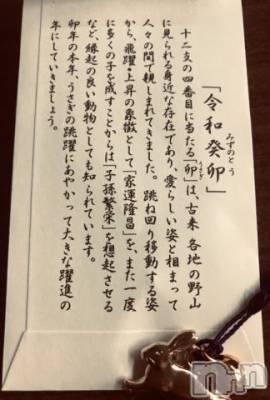 「令和癸卯」
みずのとう
十二支の四番目に当たる「卯」は、古来 各地の野山
うさぎ
に見られる身近な存在であり、愛らしい姿と相まって
人々の間で親しまれてきました。跳ね回り移動する姿
から、飛躍・上昇の象徴として「家運隆昌」を、また一度
に多くの子を成すことからは「子孫繁栄」を想起させる
など、縁起の良い動物としても知られています。
卯年の本年、うさぎの跳躍にあやかって大きな躍進の
年にしていきましょう。